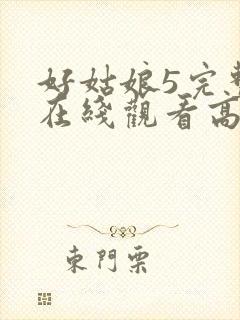 好姑娘5完整
在綫觀看高
東門栗